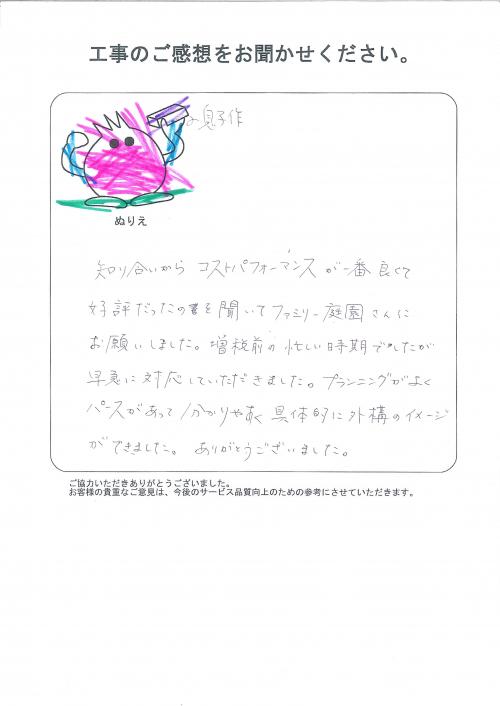 工事のご感想をお聞かせください。
息子作
ぬりえ
知り合いから コストパフォーマンスが一番良くて
好評だったのを聞いてファミリー庭園さんに
お願いしました。増税前の忙しい時期でしたが
早急に対応していただきました。プランニングがよく
パースがあって分かりやすく具体的に外構のイメージ
ができました。ありがとうございました。
ご協力いただきありがとうございました。
お客様の貴重なご意見は、今後のサービス品質向上のための参考にさせていただきます。